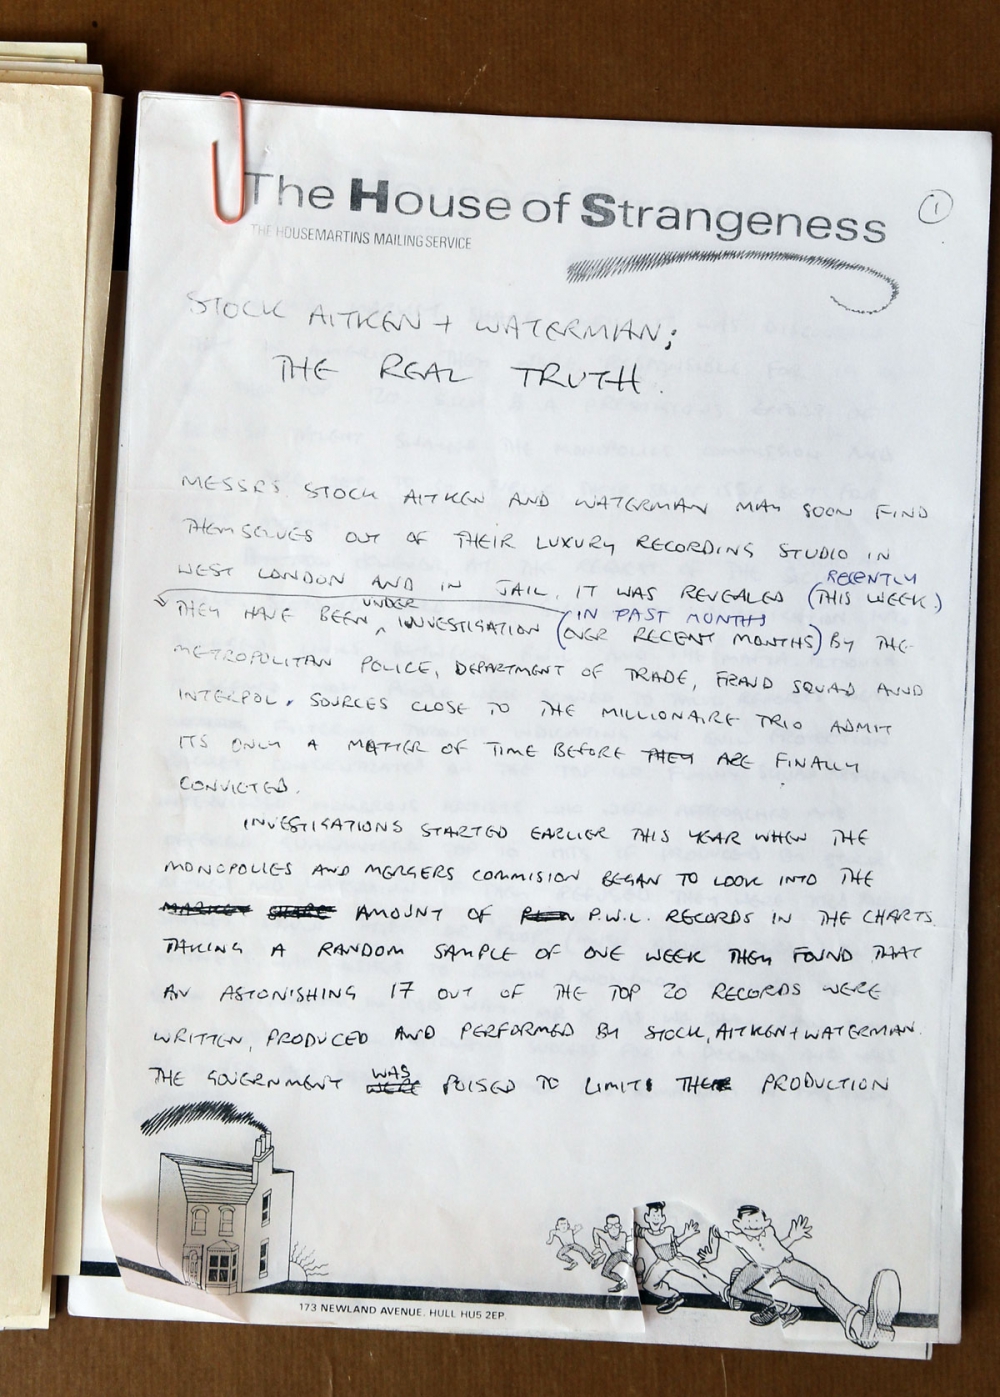 The House of Strangeness
1
THE HOUSEMARTINS MAILING SERVICE
STOCK AITKEN + WATERMAN;
THE REAL TRUTH.
MESSRS. STOCK AITKEN AND WATERMAN MAY SOON FIND
THEMSELVES OUT OF THEIR LUXURY RECORDING STUDIO IN
RECENTLY
WEST LONDON AND IN JAIL, IT WAS REVEALED (THIS WEEK.)
UNDER IN PAST MONTHS
THEY HAVE BEEN ^ INVESTIGATION (OVER RECENT MONTHS) BY THE
METROPOLITAN POLICE, DEPARTMENT OF TRADE, FRAUD SQUAD AND
INTERPOL. SOURCES CLOSE TO THE MILLIONAIRE TRIO ADMIT
ITS ONLY A MATTER OF TIME BEFORE THEY ARE FINALLY
CONVICTED.
INVESTIGATIONS STARTED EARLIER THIS YEAR WHEN THE
MONOPOLIES AND MERGERS COMMISION BEGAN TO LOOK INTO THE
MARKET SHARE AMOUNT OF P.W.L. RECORDS IN THE CHARTS.
TAKING A RANDOM SAMPLE OF ONE WEEK THEY FOUND THAT
AN ASTONISHING 17 OUT OF THE TOP 20 RECORDS WERE
WRITTEN, PRODUCED AND PERFORMED BY STOCK, AITKEN + WATERMAN.
WAS
THE GOVERNMENT WERE POISED TO LIMIT THE PRODUCTION
173 NEWLAND AVENUE. HULL HU5 2EP.